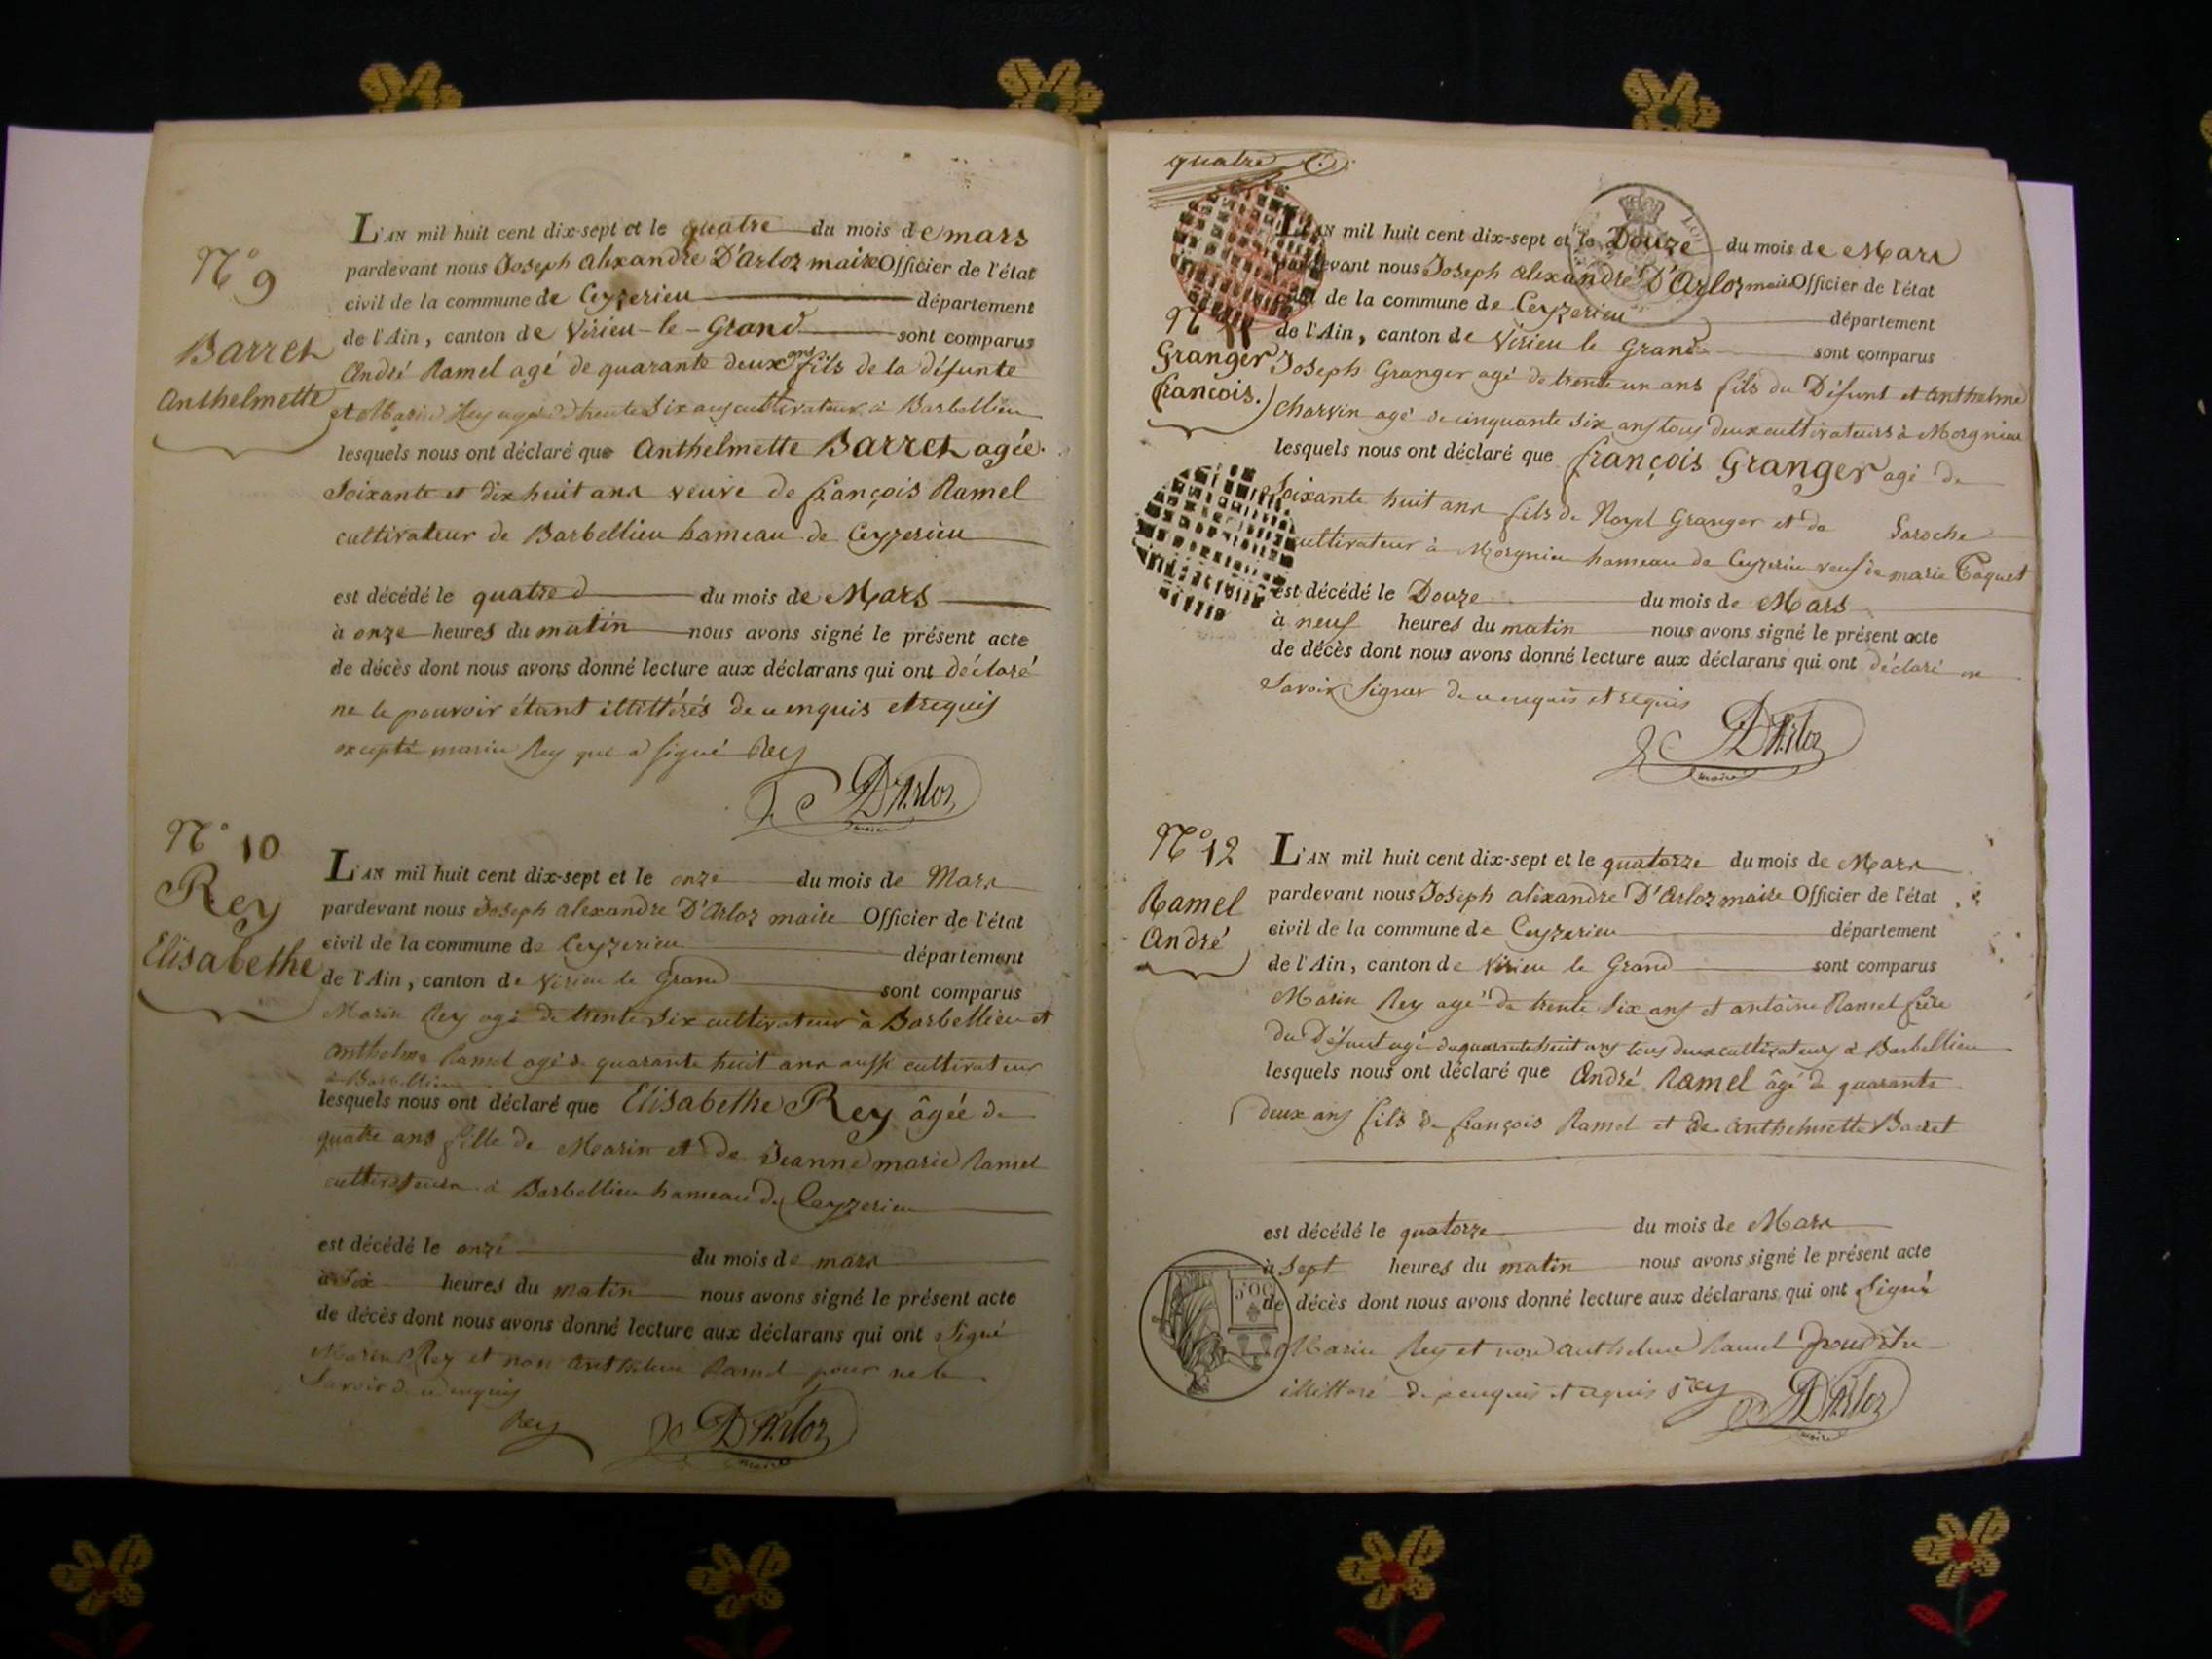 N.° 9
Barret
Anthelmette
L'AN mil huit cent dix-sept et le quatre du mois de mars
pardevant nous Joseph alexandre D'Arloz maire Officier de l'état
civil de la commune de Ceyzerieu département
de l'Ain, canton de Virieu-le-Grand sont comparus
André Ramel agé de quarante deux ans fils de la défunte
et Marin Rey agé de trente Six ans cultivateurs à Barbellieu
lesquels nous ont déclaré que Anthelmette Barret agée
Soixante et dix huit ans veuve de françois Ramel
cultivateur de Barbellieu hameau de Ceyzerieu
est décédé le quatre du mois de Mars
à onze heures du matin nous avons signé le présent acte
de décès dont nous avons donné lecture aux déclarans qui ont déclaré
ne le pouvoir étant illittérés de ce enquis et requis
excepté marin Rey qui a signé Rey
D'Arloz
maire
N.° 10
Rey
Elisabethe
L'AN mil huit cent dix-sept et le onze du mois de Mars
pardevant nous Joseph alexandre D'Arloz maire Officier de l'état
civil de la commune de Ceyzerieu département
de l'Ain, canton de Virieu le Grand sont comparus
Marin Rey agé de trente Six cultivateur à Barbellieu et
anthelme Ramel agé de quarante huit ans aussi cultivateur
à Barbellieu
lesquels nous ont déclaré que Elisabethe Rey âgée de
quatre ans fille de Marin et de Jeanne marie Ramel
cultivateurs à Barbellieu hameau de Ceyzerieu
est décédé le onze du mois de mars
à Six heures du matin nous avons signé le présent acte
de décès dont nous avons donné lecture aux déclarans qui ont signé
Marin Rey et non anthelme Ramel pour ne le
Savoir de ce enquis
Rey
D'Arloz
maire
quatre
N.° 11
Granger
francois.
L'AN mil huit cent dix-sept et le Douze du mois de Mars
pardevant nous Joseph alexandre D'Arloz maire Officier de l'état
civil de la commune de Ceyzerieu département
de l'Ain, canton de Virieu le Grand sont comparus
Joseph Granger agé de trente un ans fils du Défunt et anthelme
Charvin agé de cinquante Six ans tous deux cultivateurs à Morgnieu
lesquels nous ont déclaré que françois Granger agé de
Soixante huit ans fils de Granger et de Laroche
cultivateur à Morgnieu hameau de Ceyzerieu veuf de marie
est décédé le Douze du mois de Mars
à neuf heures du matin nous avons signé le présent acte
de décès dont nous avons donné lecture aux déclarans qui ont déclaré ne
Savoir Signer de ce enquis et requis
D'Arloz
maire
N.° 12
Ramel
André
L'AN mil huit cent dix-sept et le quatorze du mois de Mars
pardevant nous Joseph alexandre D'Arloz maire Officier de l'état
civil de la commune de Ceyzerieu département
de l'Ain, canton de Virieu le Grand sont comparus
Marin Rey agé de trente Six ans et antoine Ramel frère
du Défunt agé de quarante huit ans tous deux cultivateurs à Barbellieu
lesquels nous ont déclaré que André Ramel âgé de quarante
deux ans fils de françois Ramel et de anthelmette Barret
est décédé le quatorze du mois de Mars
à Sept heures du matin nous avons signé le présent acte
de décès dont nous avons donné lecture aux déclarans qui ont Signé
Marin Rey et non anthelme Ramel pour être
illittéré de ce enquis et requis Rey
D'Arloz
maire